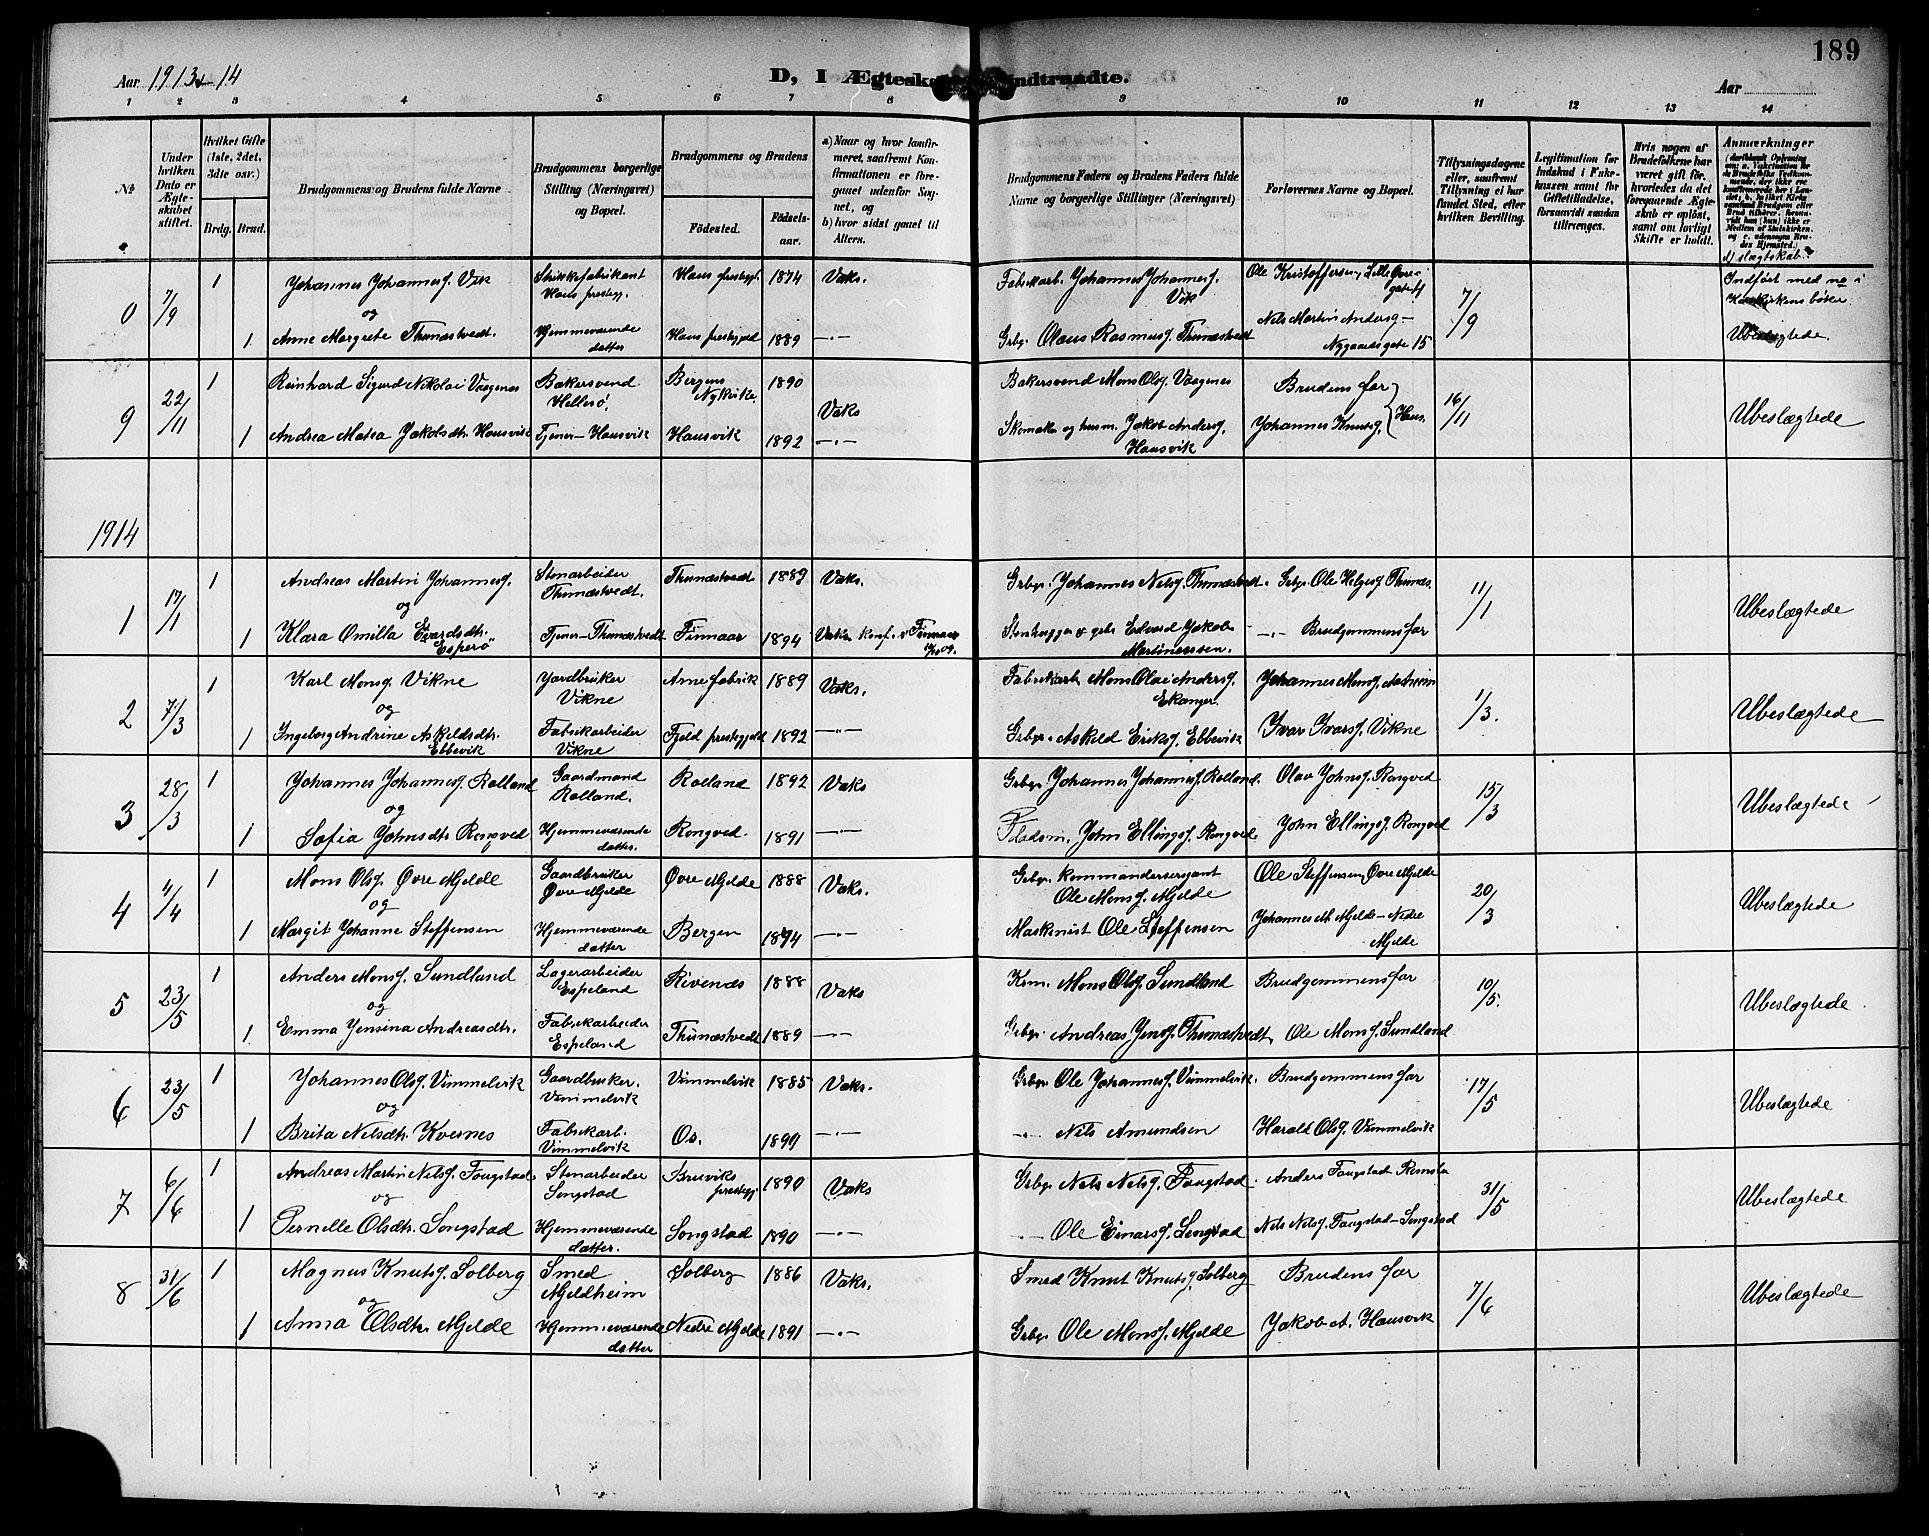 189
Aar 1913 & 14
D, I Ægtesk ndtraadte.
Aar
1 2 3 4 5 6 7 8 9 10 11 12 13 14
No
Under hvilken Dato er Ægteskabet stiftet.
Hvilket Gifte (1ste, 2det, 3die osv.)
Brdg. Brud.
Brudgommens og Brudens fulde Navne
Brudgommens borgerlige Stilling (Næringsvei) og Bopæl.
Brudgommens og Brudens
Fødested.
Fødselsaar.
a) Naar og hvor konfirmeret, saafremt Konfirmationen er foregaaet udenfor Sognet, og
b) hvor sidst gaaet til Alters.
Brudgommens Faders og Brudens Faders fulde Navne og borgerlige Stillinger (Næringsvei)
Forlovernes Navne og Bopæl.
Tillysningsdagene eller, saafremt Tillysning ei har fundet Sted, efter hvilken Bevilling.
Legitimation for Indskud i Enkekassen samt for Giftetilladelse, forsaavidt saadan tiltrænges.
Hvis nogen af Brudefolkene har været gift før, hvorledes da det foregaaende Ægteskab er opløst, samt om lovligt Skifte er holdt.
Anmærkninger
0 7/9 1 Johannes Johannesf. Vik Strikkefabrikant Haus prestegj. Haus prestegj. 1874 Vaks. Fabrikarb. Johannes Johannesf. Vik Ole Kristoffersen, Lille Øvregate 7/9 Indført med no i
og
1 Anne Margrete Thunæstvedt. Hjemmeværende datter Haus prestegjeld 1889 —"— Grbr. Olaus Rasmusf. Thunæstvedt Nils Martin Andersf. - Nygaardsgate 15 Ubeslægtede.
9 22/11 1 Reinhard Sigurd Nikolai Vaagenes Bakersvend Hellesø, Bergens Nykirke. 1890 Vaks Bakersvend Mons Olsf. Vaagenes Brudens far 16/11 Ubeslægtede
1 Andrea Matea Jakobsdtr. Hausvik Tjener - Hausvik Hausvik 1892 —"— Skomaker og husm. Jakob Andersf. Hausvik Johannes Knutsf. Haus.
1914
1 17/1 1 Andreas Martin Johannesf. Stenarbeider Thunæstvedt. Thunæstvedt 1889 Vaks. Grbr. Johannes Nilsf. Thunæstvedt. Grbr. Ole Helgesf. Thunæs. 11/1 Ubeslægtede
og
1 Klara Omilla Evardsdtr. Esperø Tjener - Thunæstvedt Finnaas 1894 Vaks. konf. i Finnaas Stenhugger & grbr. Edvard Jakob Martineussen. —"— Brudgommens far
2 7/3 1 Karl Monsf. Vikne Jordbruker Vikne Arnefabrik 1889 Vaks. Fabrikarb. Mons Olai Andersf. Ekanger. Johannes Monsf. Aatheim 1/3. Ubeslægtede
og
1 Ingeborg Andrine Askeldsdtr. Ebbevik Fabrikarbeider Vikne Fjeld prestegjeld 1892 —"— Grbr. Askeld Eriksf. Ebbevik Ivar Ivarsf. Vikne
3 28/3 1 Johannes Johannesf. Rolland Gaardmand Rolland. Rolland 1892 Vaks Grbr. Johannes Johannesf. Rolland. Olav Johnsf. Rongved 15/3 Ubeslægtede
og
1 Sofia Johnsdtr. Rongved Hjemmeværende datter. Rongved. 1891 —"— Pladsm. John Ellingsf. Rongved. John Ellingsf. Rongved
4 4/4 1 Mons Olsf. Øvre Mjelde Gaardbruker Øvre Mjelde Øvre Mjelde 1888 Vaks. Grbr. Kommandersergant Ole Monsf. Mjelde Ole Steffensen, Øvre Mjelde 20/3 Ubeslægtede
og
1 Margit Johanne Steffensen Hjemmeværende datter Bergen 1894 —"— Maskinist Ole Steffensen Johannes M. Mjelde - Nedre Mjelde
5 23/5 1 Anders Monsf. Sundland Lagerarbeider Espeland Rivenæs 1888 Vaks Mons Olsf. Sundland Brudgommens far 10/5. Ubeslægtede
og
1 Emma Jensina Andreasdtr. Fabrikarbeider Espeland Thunæstvedt 1889 —"— Grbr. Andreas Jensf. Thunæstvedt, Ole Monsf. Sundland
6 23/5 1 Johannes Olsf. Vimmelvik Gaardbruker. Vimmelvik Vimmelvik 1885 Vaks. Grbr. Ole Johannesf. Vimmelvik. Brudgommens far 17/5 Ubeslægtede
og
1 Brita Nilsdtr. Kvernes Fabrikarb. Vimmelvik Os. 1890 —"— —"— Nils Amundsen Harald Olsf. Vimmelvik
7 6/6 1 Andreas Martin Nilsf. Faugstad Stenarbeider Songstad Bruviks prestegj. 1890 Vaks Grbr. Nils Nilsf. Faugstad. Anders Faugstad Romslo 31/5 Ubeslægtede
og
1 Pernille Olsdtr. Songstad Hjemmeværende datter. Songstad 1890 —"— —"— Ole Einarsf. Songstad Nils Nilsf. Faugstad - Songstad
8 31/6 1 Magnus Knutsf. Solberg Smed Mjeldheim Solberg 1886 Vaks. Smed Knut Knutsf. Solberg Brudens far 7/6 Ubeslægtede
og
1 Anna Olsdtr. Mjelde Hjemmeværende datter Nedre Mjelde 1891 —"— Grbr. Ole Monsf. Mjelde Jakob A. Hausvik